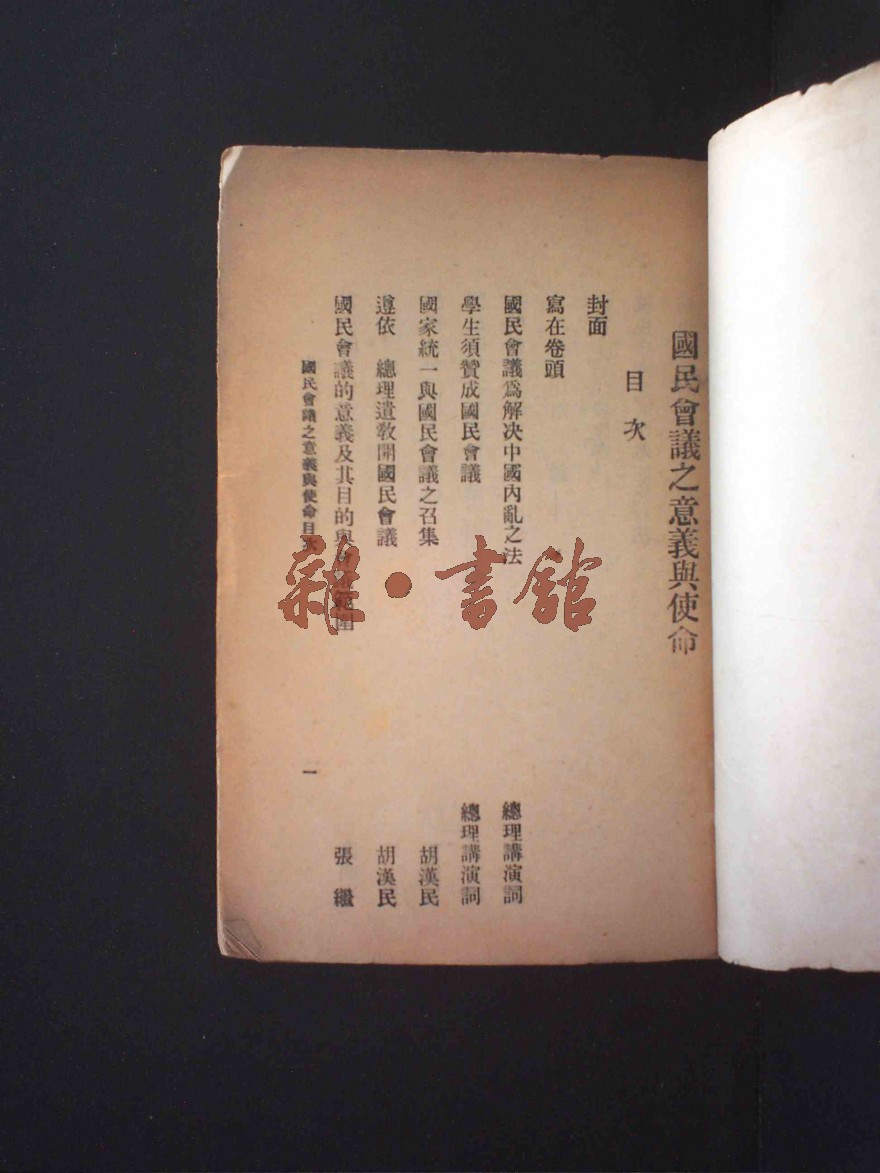 國民會議之意義與使命
目次
封面
寫在卷頭
國民會議爲解决中國內亂之法 總理講演詞
學生須贊成國民會議 總理講演詞
國家統一與國民會議之召集 胡漢民
遵依 總理遺敎開國民會議 胡漢民
國民會議的意義及其目的與 範圍 張繼
國民會議之意義與使命目次 一
雜·書館